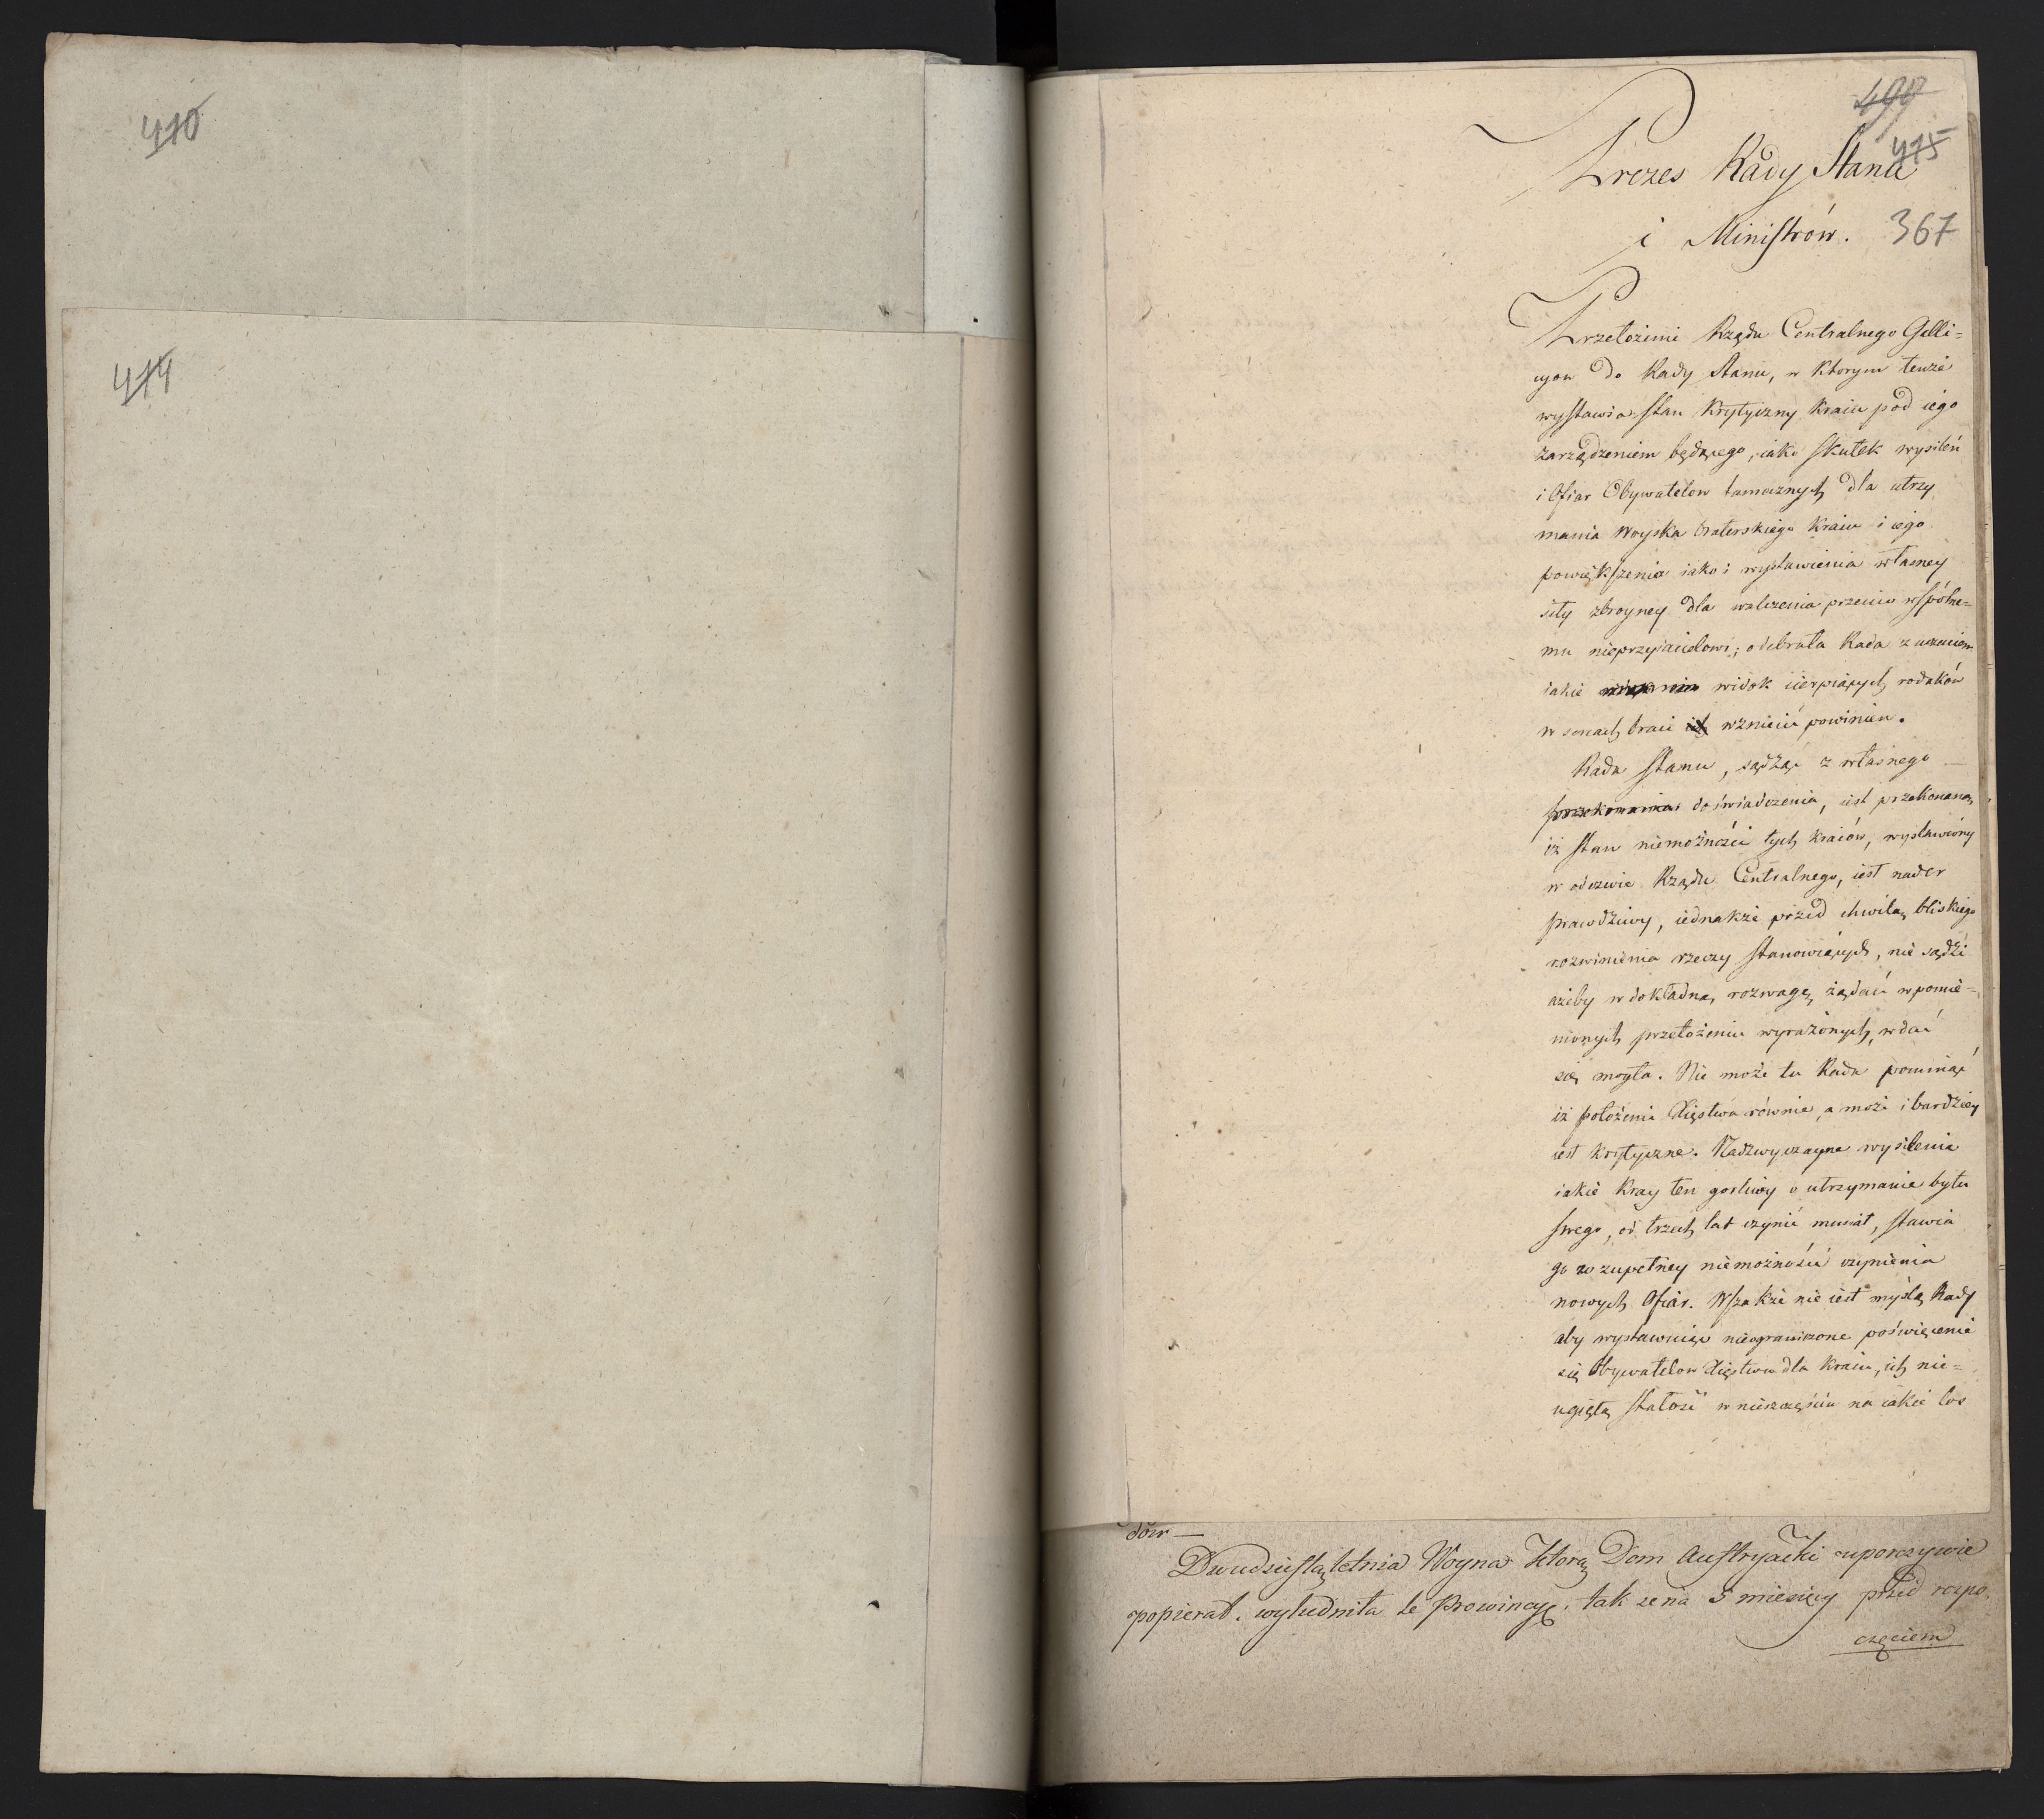 410
414
490
415
Prezes Rady Stanu
i Ministrów. 367
Przełożenie Rządu Centralnego Galli=
cyou do Rady Stanu, w ktorym tenże
wystawia stan krytyczny kraiu pod iego
zarządzeniem będącego, iako skutek wysileń
i Ofiar Obywatelow tamecznych dla utrzy
mania Woyska braterskiego kraiu i iego
powiększenia iako i wystawienia własney
siły zbroyney dla walczenia przeciw wspólne=
mu nieprzyiacielowi; odebrała Rada z uczuciem
iakie widok cierpiących rodaków
w sercach braci ich wzniecić powinien.
Rada Stanu, sądząc z własnego
przekonania doświadczenia, iest przekonaną,
iż stan niemożności tych kraiów, wystawiony
w odezwie Rządu Centralnego, iest nader
prawdziwy, iednakże przed chwilą bliskiego
rozwinienia rzeczy stanowiących, nie sądzi
ażeby w dokładną rozwagę żądań w pomie=
nionych przełożeniu wyrażonych, wdać
się mogła. Nie może tu Rada pominąć
iż położenie Xięstwa równie, a może i bardziey
iest krytyczne. Nadzwyczayne wysilenia
iakie kray ten gorliwy o utrzymanie bytu
swego, od trzech lat czynić musiał, stawia
go w zupełney niemożności czynienia
nowych Ofiar. Wszakże nie iest myślą Rady
aby wystawuiąc nieograniczone poświęcenie
się Obywatelow Xięstwa dla kraiu, ich nie=
ugiętą stałość w nieszczęściu na iakie los
dów —
Dwudziestąletnia Woyna którą Dom Austryacki uporczywie
popierał. wyludniła te Prowincye. tak że na 5 miesięcy przed rozpo
częciem